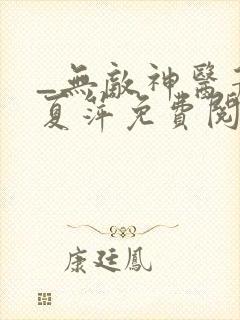 _無敵神醫
夏萍免費閱
康廷鳳